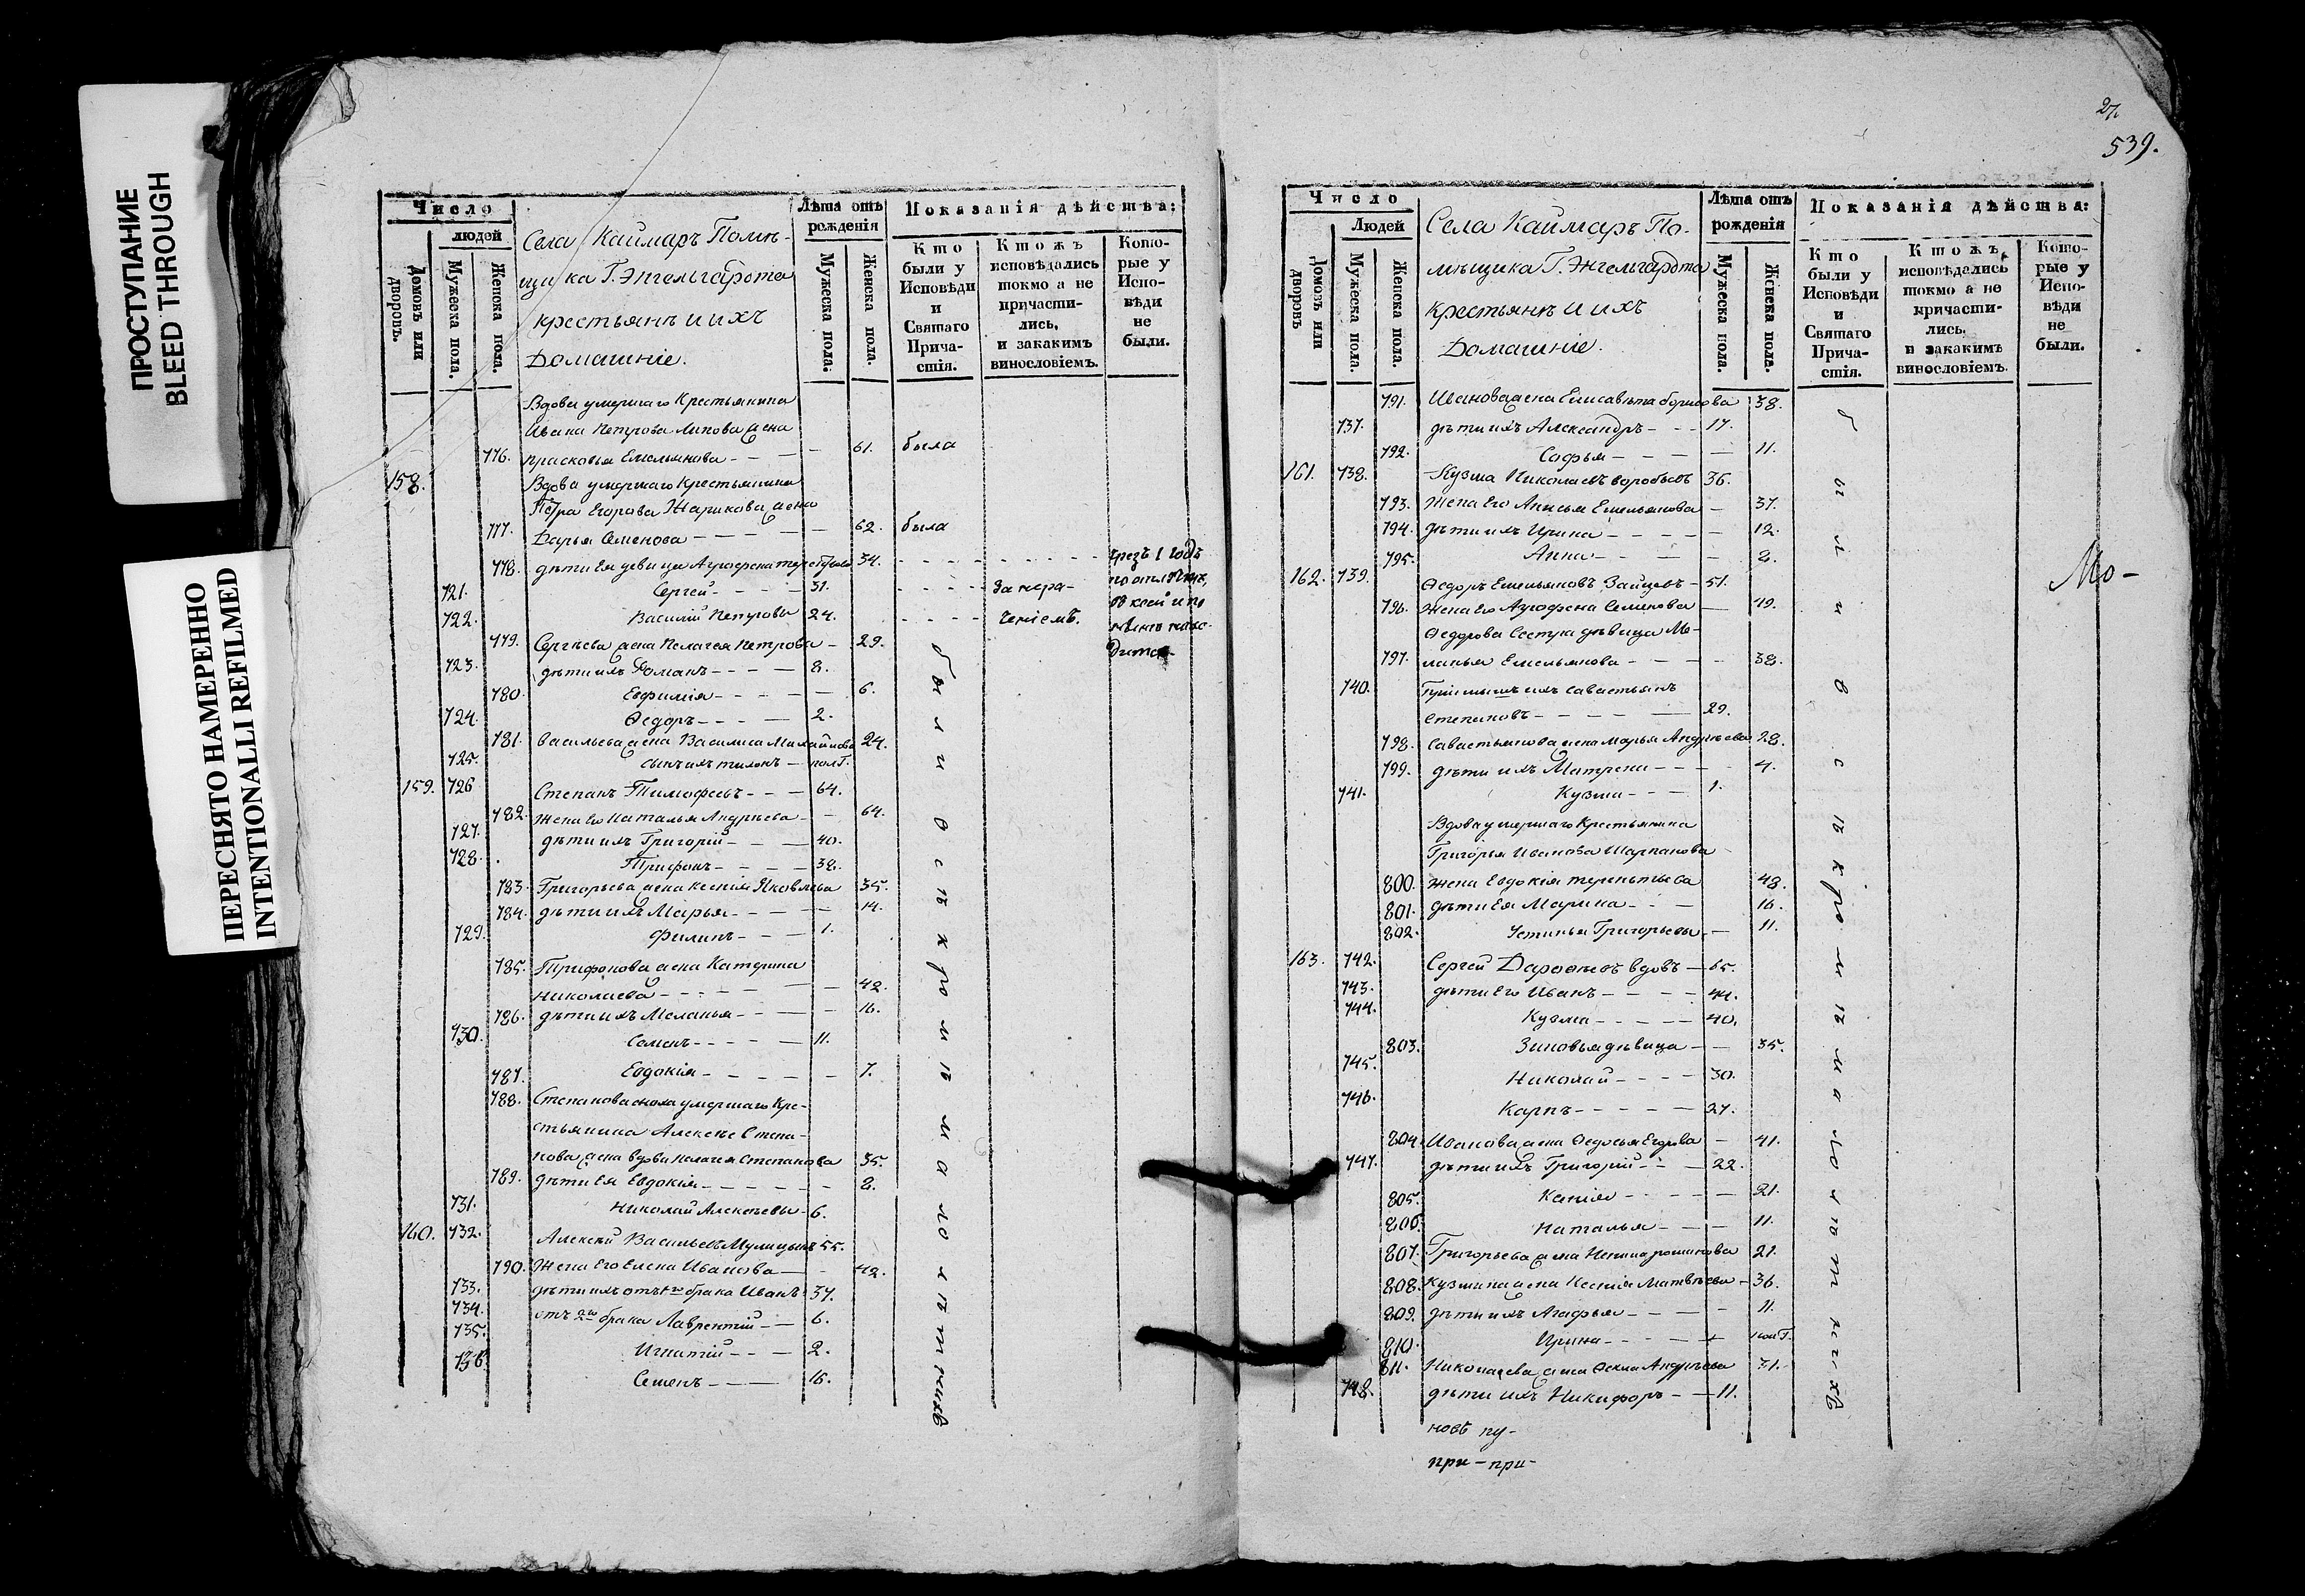 ПРОСТУПАНИЕ
BLEED THROUGH
ПЕРЕСНЯТО НАМЕРЕННО
INTENTIONALLI REFILMED
Число
людей
Домовъ или дворовъ.
Мужеска пола.
Женска пола.
Села Каймаръ Помѣ-
щика Г. Энгельгардта
крестьянъ и ихъ
Домашніе.
Лѣта отъ рожденія
Мужеска пола.
Женска пола.
Показанія дѣйства:
Кто были у Исповѣди и Святаго Прича-стія.
Ктожъ исповѣдались токмо а не причасти-лись, и закакимъ винословіемъ.
Кото-рые у Испо-вѣди не были.
Вдова умершаго Крестьянина
Ивана Петрова жена
776. Прасковья Емельянова - - - 61. была
158. Вдова умершаго Крестьянина
Петра Егорова Жарикова жена
777. Дарья Семенова - - - - 62. была
778. дѣти Ея девица Агрофена 34.
721. Сергей - - - - 31. За нера-
722. Василий Петровы 24. ченіемъ.
779. Сергѣева жена Пелагея Петрова - 29.
723. дѣти ихъ Романъ - - - 8.
780. Евфимія - - - - 6.
724. Ѳедоръ - - - 2.
781. Васильева жена Василиса Михайлова 24.
725. сынъ ихъ Тихонъ - пол Г.
159. 726 Степанъ Тимофеевъ - - - 64.
782. Жена Его Наталья Андрѣева - - 64.
727. дѣти ихъ Григорій - - - 40.
728. Трифонъ - - - - 38.
783. Григорьева жена Ксенія Яковлева 35.
784. дѣти ихъ Марья - - - - 14.
729. Филипъ - - - 1.
785. Трифонова жена Катерина
Николаева - - - - - 42.
786. дѣти ихъ Меланья - - - - 16.
730. Семенъ - - - - 11.
787. Евдокія - - - - - 7.
788. Степанова сноха умершаго Кре-
стьянина Алексѣя Степа-
нова жена вдова Пелагея Степанова 35.
789. дѣти Ея Евдокія - - - - - 8.
731. Николай Алексѣевы - 6.
160. 732. Алексѣй Васильевъ 55.
790. Жена Его Елена Иванова - - 42.
733. дѣти ихъ отъ 1го брака Иванъ 37.
734. отъ 2го брака Лаврентій - - 6.
735. Игнатій - - - 2.
736. Семенъ - - - 16.
были всѣ кромѣ малолѣтнихъ
27
539.
Число
Людей
Домовъ или дворовъ
Мужеска пола.
Женска пола.
Села Каймаръ По-
мѣщика Г. Энгельгардта
Крестьянъ и ихъ
Домашніе.
Лѣта отъ рожденія
Мужеска пола.
Женска пола.
Показанія дѣйства:
Кто были у Исповѣди и Святаго Прича-стія.
Ктожъ, исповѣдались токмо а не причасти-лись, и закакимъ винословіемъ.
Кото-рые у Испо-вѣди не были.
791. Иванова жена Елисавѣта Борисова 38.
737. дѣти ихъ Александръ - - - 17.
792. Софья - - - - 11.
161. 738. Кузма Николаевъ Воробьевъ 36.
793. Жена Его Анисья Емельянова - 37.
794. дѣти ихъ Ирина - - - - - 12.
795. Анна - - - - 8.
162. 739. Ѳедоръ Емельяновъ Зайцевъ - 51.
796. Жена Его Агрофена Семенова - 49.
Ѳедорова Сестра дѣвица Ме-
797. ланья Емельянова - - - - 38.
740. ихъ Савастьянъ
Степановъ - - - - - 29.
798. Савастьянова жена Марья Андрѣева 28.
799. дѣти ихъ Матрена - - - 4.
741. Кузма - - - 1.
Вдова умершаго Крестьянина
Григорья Иванова
800. жена Евдокія Терентьева 48.
801. дѣти Ея Марина - - - 16.
802. Устинья Григорьевы - 11.
163. 742. Сергей Дарофеевъ вдовъ - 65.
743. дѣти Его Иванъ - - - - 44.
744. Кузма - - - - 40.
803. Зиновья дѣвица - - 35.
745. Николай - - - - 30.
746. Карпъ - - - - - 27.
804. Иванова жена Ѳедосья Егорова - 41.
747. дѣти ихъ Григорій - - - 22.
805. Ксенія - - - - - 21.
806. Наталья - - - 11.
807. Григорьева жена 21.
808. Кузмина жена Ксенія Матвѣева - 36.
809. дѣти ихъ Агафья - - - - 11.
810. Ирина - - - - - пол Г.
811. Николаева жена Ѳекла Андрѣева 31.
748. дѣти ихъ Никифоръ - - 11.
были всѣ кромѣ малолѣтнихъ
Мо-
новѣ пу-
при - при-